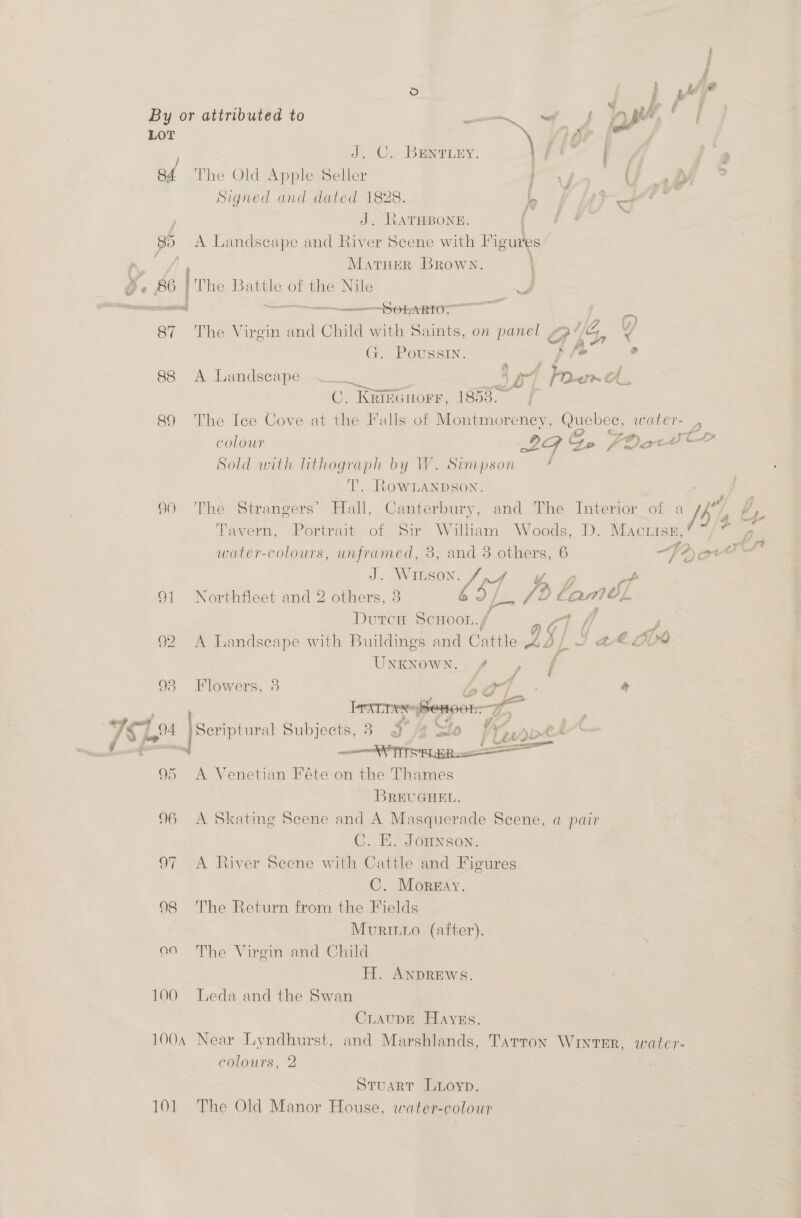 By or attributed to
LOT
J. C. BENTLEY.
84 The Old Apple Seller
Signed and dated 1828.
J. RATHBONE.
85 A Landscape and River Scene with Figures
MATHER BROWN.
86 The Battle of the Nile
SOLARIO.
87 The Virgin and Child with Saints, on panel
G. POUSSIN.
88 A Landscape
C. KRIEGHOFF, 1853.
89 The Ice Cove at the Falls of Montmorency, Quebec, water-
colour
Sold with lithograph by W. Simpson
T. ROWLANDSON.
90 The Strangers' Hall, Canterbury, and The Interior of a
Tavern, Portrait of Sir William Woods, D. MACLISE,
water-colours, unframed, 3, and 3 others, 6
J. WILSON.
91 Northfleet and 2 others, 3
DUTCH SCHOOL.
92 A Landscape with Buildings and Cattle
UNKNOWN.
93 Flowers, 3
ITALIAN SCHOOL.
94 Scriptural Subjects, 3
WHISTLER.
95 A Venetian Fête on the Thames
BREUGHEL.
96 A Skating Scene and A Masquerade Scene, a pair
C. E. JOHNSON.
97 A River Scene with Cattle and Figures
C. MOREAY.
98 The Return from the Fields
MURILLO (after).
99 The Virgin and Child
H. ANDREWS.
100 Leda and the Swan
CLAUDE HAYES.
100A Near Lyndhurst, and Marshlands, TATTON WINTER, water-
colours, 2
STUART LLOYD.
101 The Old Manor House, water-colour